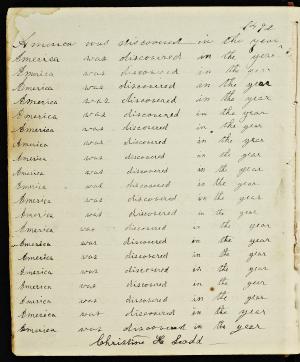 1492
America was discovered in the year
America was discovered in the year
America was discovered in the year
America was discovered in the year
America was discovered in the year
America was discovered in the year
America was discovered in the year
America was discovered in the year
America was discovered in the year
America was discovered in the year
America was discovered in the year
America was discovered in the year
America was discovered in the year
America was discovered in the year
America was discovered in the year
America was discovered in the year
America was discovered in the year
America was discovered in the year
America was discovered in the year
America was discovered in the year
America was discovered in the year
Christine H Ladd